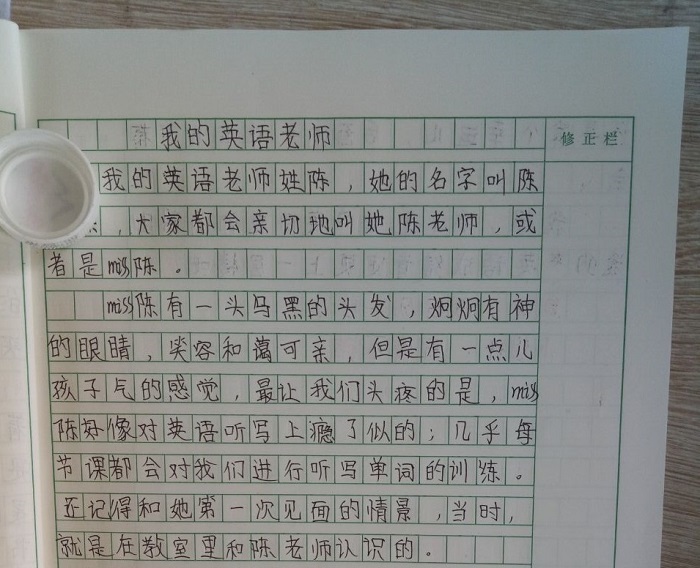 我的英语老师
修正栏
我的英语老师姓陈，她的名字叫陈
，大家都会亲切地叫她陈老师，或
者是miss陈。
miss陈有一头乌黑的头发，炯炯有神
的眼睛，笑容和蔼可亲，但是有一点儿
孩子气的感觉，最让我们头疼的是，miss
陈好像对英语听写上瘾了似的；几乎每
节课都会对我们进行听写单词的训练。
还记得和她第一次见面的情景，当时，
就是在教室里和陈老师认识的。